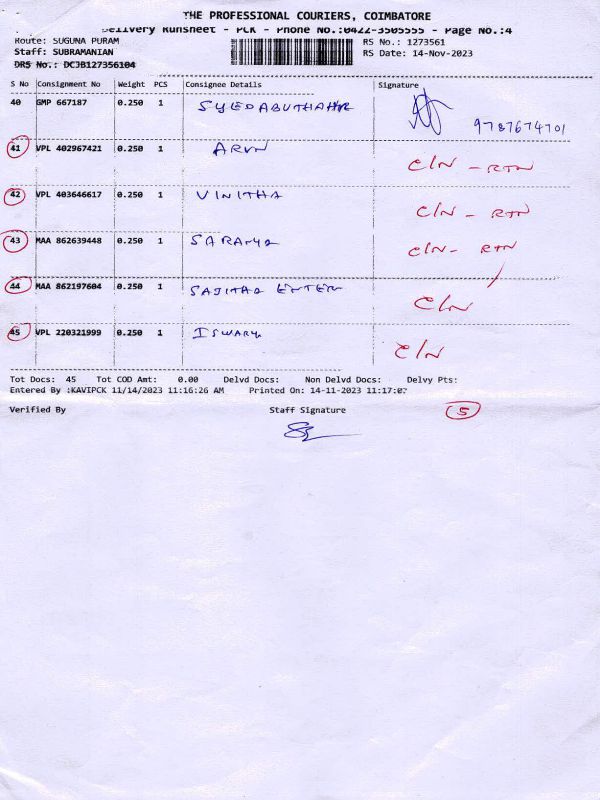 THE PROFESSIONAL COURIERS, COIMBATORE
Delivery Runsheet - PCK - Phone No.:0422-3505555 - Page No.:4
Route: SUGUNA PURAM RS No.: 1273561
Staff: SUBRAMANIAN RS Date: 14-Nov-2023
DRS No.: DCJB127356104
S No Consignment No Weight PCS Consignee Details Signature
40 GMP 667187 0.250 1 SYEDABUTHAHIR 9787674701
41 VPL 402967421 0.250 1 ARUN C/N - RTN
42 VPL 403646617 0.250 1 VINITHA C/N - RTN
43 MAA 862639448 0.250 1 SARANYA C/N - RTN
44 MAA 862197604 0.250 1 SAJITHA ENTER C/N
45 VPL 220321999 0.250 1 ISWARYA C/N
Tot Docs: 45 Tot COD Amt: 0.00 Delvd Docs: Non Delvd Docs: Delvy Pts:
Entered By :KAVIPCK 11/14/2023 11:16:26 AM Printed On: 14-11-2023 11:17:0
Verified By Staff Signature 5